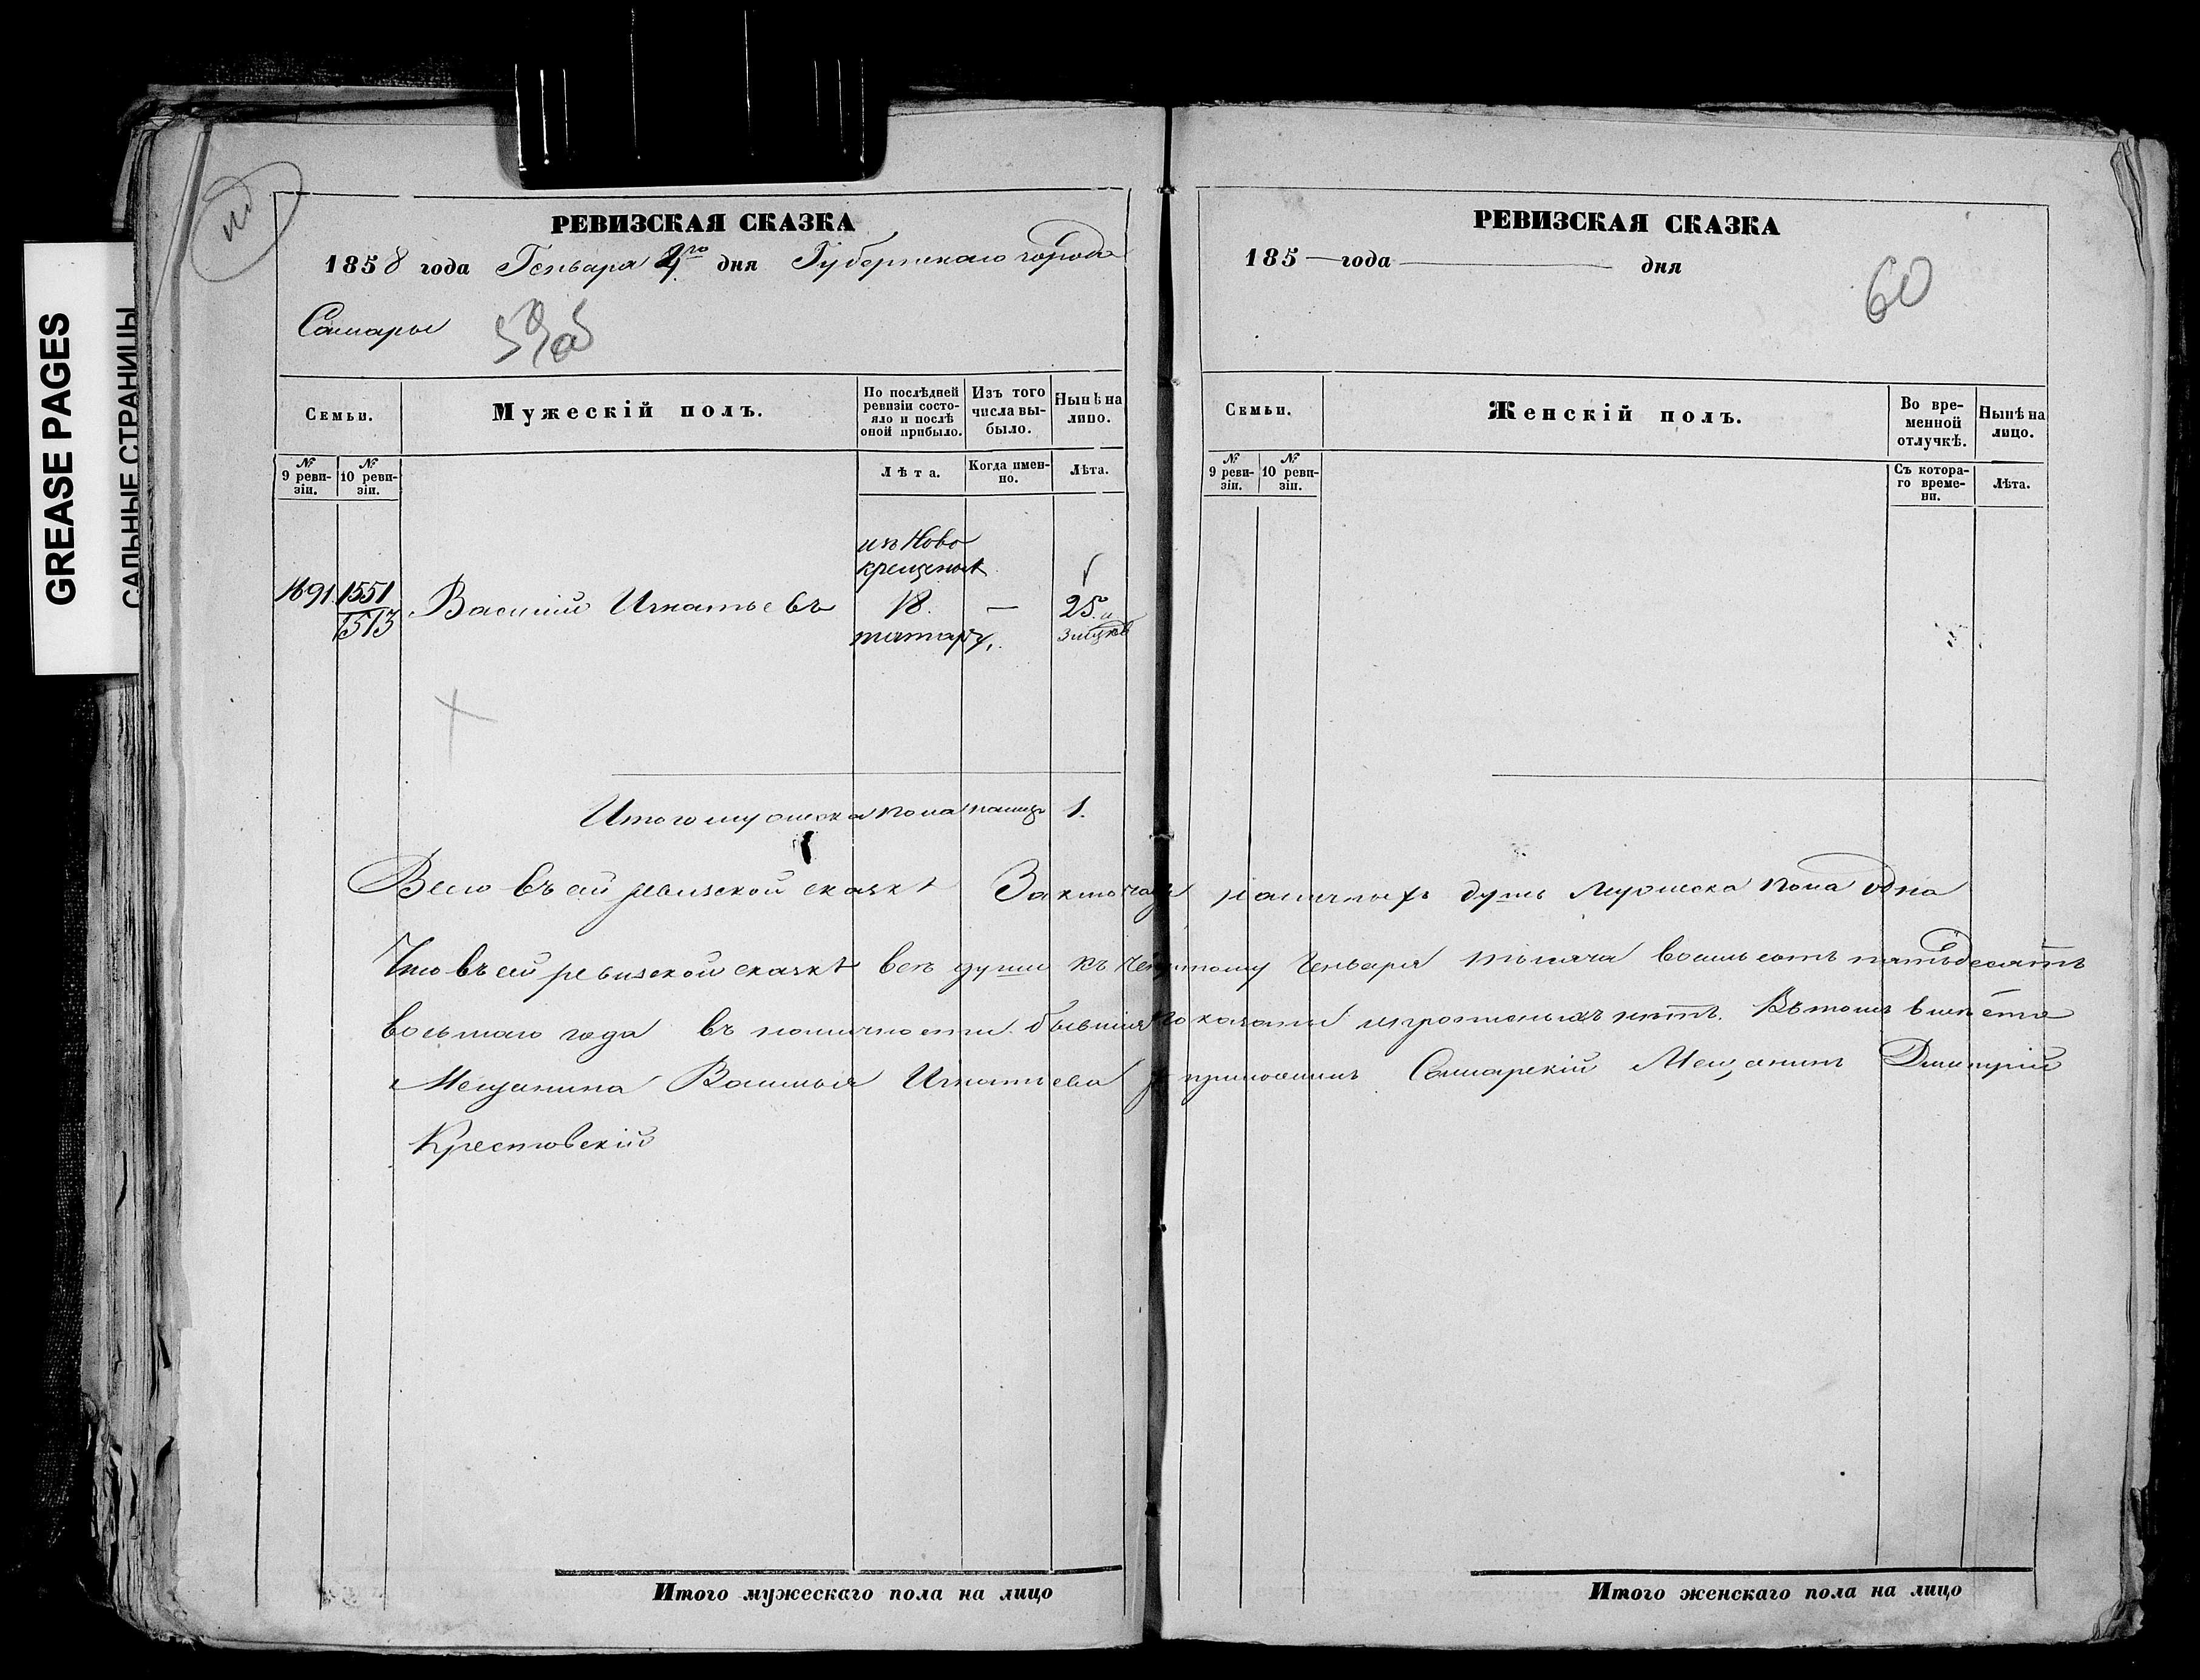 GREASE PAGES
САЛЬНЫЕ СТРАНИЦЫ
РЕВИЗСКАЯ СКАЗКА
1858 года Генваря 4го дня Губернскаго города
Самары
59об
Семьи.
Мужескій полъ.
По послѣдней ревизіи состояло и послѣ оной прибыло.
Изъ того числа выбыло.
Нынѣ на лицо.
№ 9 ревизіи.
№ 10 ревизіи.
Лѣта.
Когда именно.
Лѣта.
изъ Ново
крещеныхъ
1691 1551 Василій Игнатьевъ 18. — 25.
1513
татаръ,
Итого мужеска пола налицо 1.
РЕВИЗСКАЯ СКАЗКА
185 — года — дня
60
Семьи.
Женскій полъ.
Во временной отлучкѣ.
Нынѣ на лицо.
№ 9 ревизіи.
№ 10 ревизіи.
Съ котораго времени.
Лѣта.
Всего въ сей ревизской сказкѣ Заключается наличныхъ душъ мужеска пола одна
Что въ сей ревизской сказкѣ всѣ души къ четвертому Генваря тысяча восемь сотъ пятьдесятъ
восьмаго года въ наличности бывшія показаны и прописныхъ нѣтъ. Въ томъ вмѣсто
Мещанина Василья Игнатьева Самарскій Мещанинъ Дмитрій
Крестовскій
Итого мужескаго пола на лицо
Итого женскаго пола на лицо